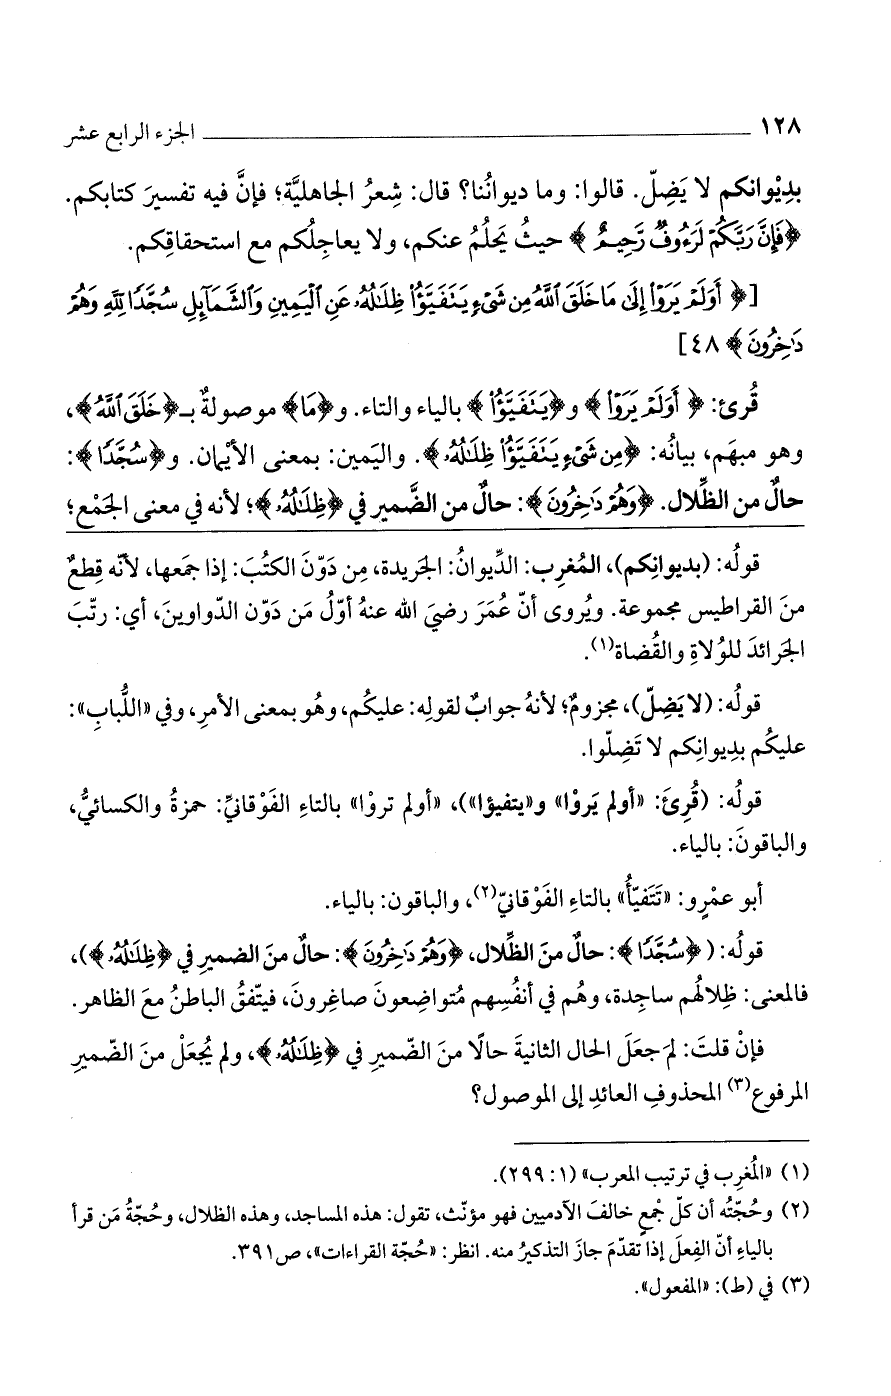 ١٢٨ الجزء الرابع عشر
بدِيْوانكم لا يَضِلّ. قالوا: وما ديوانُنا؟ قال: شِعرُ الجاهليَّة؛ فإنَّ فيه تفسيرَ كتابكم.
﴿فَإِنَّ رَبَّكُمْ لَرَءُوفٌ رَّحِيمٌ﴾ حيثُ يَحلُمُ عنكم، ولا يعاجِلُكم مع استحقاقِكم.
[﴿أَوَلَمْ يَرَوْا۟ إِلَىٰ مَا خَلَقَ ٱللَّهُ مِن شَىْءٍ يَتَفَيَّؤُا۟ ظِلَـٰلُهُۥ عَنِ ٱلْيَمِينِ وَٱلشَّمَآئِلِ سُجَّدًا لِّلَّهِ وَهُمْ
دَٰخِرُونَ﴾ ٤٨]
قُرئ: ﴿أَوَلَمْ يَرَوْا۟﴾ و﴿يَتَفَيَّؤُا۟﴾ بالياء والتاء. و﴿مَا﴾ موصولةٌ بـ﴿خَلَقَ ٱللَّهُ﴾،
وهو مبهَم، بيانُه: ﴿مِن شَىْءٍ يَتَفَيَّؤُا۟ ظِلَـٰلُهُۥ﴾. واليَمين: بمعنى الأيْمان. و﴿سُجَّدًا﴾:
حالٌ من الظِّلال. ﴿وَهُمْ دَٰخِرُونَ﴾: حالٌ من الضَّمير في ﴿ظِلَـٰلُهُۥ﴾؛ لأنه في معنى الجَمْع؛
قولُه: (بديوانِكم)، المُغرِب: الدِّيوانُ: الجَريدة، مِن دَوّنَ الكتُبَ: إذا جمَعها، لأنّه قِطعٌ
منَ القراطيس مجموعة. ويُروى أنّ عُمَرَ رضيَ الله عنهُ أوّلُ مَن دَوّن الدّواوينَ، أي: رتّبَ
الجَرائدَ للوُلاةِ والقُضاة(١).
قولُه: (لا يَضِلّ)، مجزومٌ؛ لأنهُ جوابٌ لقولِه: عليكُم، وهُو بمعنى الأمرِ، وفي «اللُّبابِ»:
عليكُم بدِيوانِكم لا تَضِلّوا.
قولُه: (قُرِئَ: «أولم يَروْا» و«يتفيؤا»)، «أولم تروْا» بالتاءِ الفَوْقانيِّ: حمزةُ والكسائيُّ،
والباقونَ: بالياء.
أبو عمْرٍو: «تَتَفيّأُ» بالتاءِ الفَوْقانيّ(٢)، والباقون: بالياء.
قولُه: (﴿سُجَّدًا﴾: حالٌ منَ الظِّلال، ﴿وَهُمْ دَٰخِرُونَ﴾: حالٌ منَ الضميرِ في ﴿ظِلَـٰلُهُۥ﴾)،
فالمعنى: ظِلالُهم ساجِدة، وهُم في أنفُسِهم مُتواضِعونَ صاغِرونَ، فيتّفقُ الباطنُ معَ الظاهر.
فإنْ قلتَ: لمَ جعَلَ الحال الثانيةَ حالًا منَ الضّميرِ في ﴿ظِلَـٰلُهُۥ﴾، ولم يُجعَلْ منَ الضّميرِ
المرفوع(٣) المحذوفِ العائدِ إلى الموصول؟
(١) «المُغرِب في ترتيب المعرب» (١: ٢٩٩).
(٢) وحُجّتُه أن كلّ جْمعٍ خالفَ الآدميين فهو مؤنّث، تقول: هذه المساجد، وهذه الظلال، وحُجّةُ مَن قرأ
بالياءِ أنّ الفِعلَ إذا تقدّمَ جازَ التذكيرُ منه. انظر: «حُجّة القراءات»، ص٣٩١.
(٣) في (ط): «المفعول».